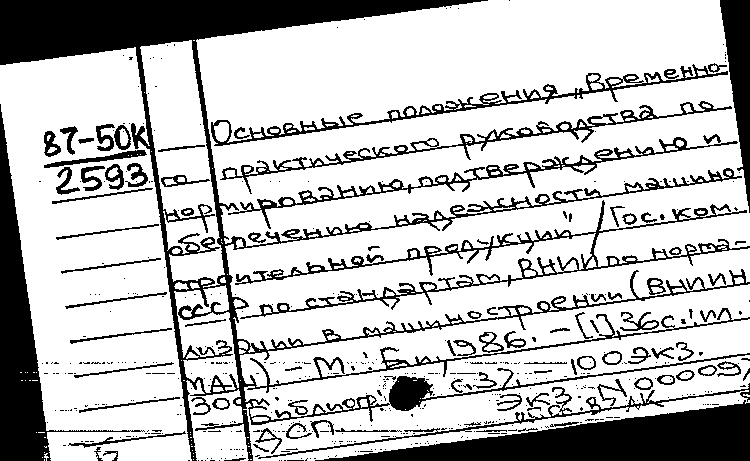 87-50К
2593
Основные положения „Временно-
го практического руководства по
нормированию, подтверждению и
обеспечению надежности машино-
строительной продукции" / Гос. ком.
СССР по стандартам, ВНИИ по норма-
лизации в машиностроении (ВНИИН
МАШ). – М.: Б.и., 1986. – [1], 36 с.: ил.
30см.
Библиогр.: с.37. – 100 экз.
ДСП. Экз. N 00009